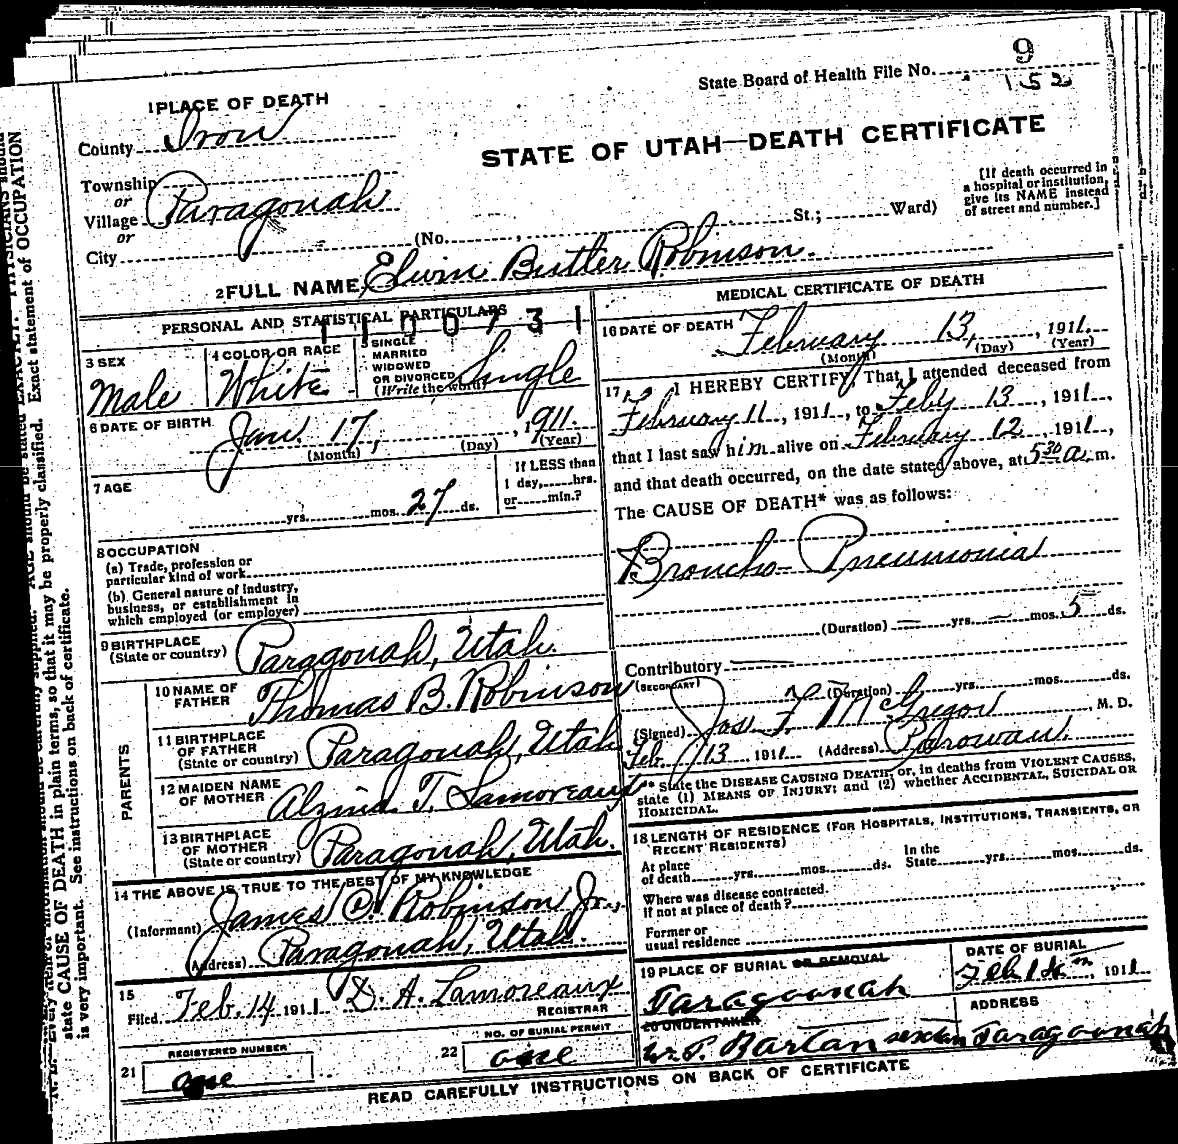 9
State Board of Health File No. 152
1 PLACE OF DEATH
County Iron
STATE OF UTAH—DEATH CERTIFICATE
Township
or
Village Paragonah
or
City (No. , St.; Ward)
[If death occurred in
a hospital or institution,
give its NAME instead
of street and number.]
2 FULL NAME Elwin Butler Robinson.
PERSONAL AND STATISTICAL PARTICULARS
1100731
3 SEX
Male
4 COLOR OR RACE
White
5 SINGLE
MARRIED
WIDOWED
OR DIVORCED
(Write the word)
Single
6 DATE OF BIRTH
Jan. 17, , 1911.
(Month) (Day) (Year)
7 AGE
yrs. mos. 27 ds.
If LESS than
1 day, hrs.
or min.?
8 OCCUPATION
(a) Trade, profession or
particular kind of work
(b) General nature of industry,
business, or establishment in
which employed (or employer)
9 BIRTHPLACE
(State or country) Paragonah, Utah.
PARENTS
10 NAME OF
FATHER Thomas B. Robinson
11 BIRTHPLACE
OF FATHER
(State or country) Paragonah, Utah
12 MAIDEN NAME
OF MOTHER Alzina T. Lamoreaux
13 BIRTHPLACE
OF MOTHER
(State or country) Paragonah, Utah.
14 THE ABOVE IS TRUE TO THE BEST OF MY KNOWLEDGE
(Informant) James Robinson Jr.,
(Address) Paragonah, Utah.
15
Filed Feb. 14 1911 D. A. Lamoreaux
REGISTRAR
REGISTERED NUMBER
21 one
NO. OF BURIAL PERMIT
22 one
MEDICAL CERTIFICATE OF DEATH
16 DATE OF DEATH
February 13, , 1911.
(Month) (Day) (Year)
17 I HEREBY CERTIFY, That I attended deceased from
February 11, 1911, to Feby 13, 1911,
that I last saw him alive on February 12, 1911,
and that death occurred, on the date stated above, at 5 30 a. m.
The CAUSE OF DEATH* was as follows:
Broncho-Pneumonia
(Duration) — yrs. — mos. 5 ds.
Contributory
(SECONDARY)
(Duration) yrs. mos. ds.
(Signed) Jas. F. McGregor, M. D.
Feb. 13 1911 (Address) Parowan.
* State the DISEASE CAUSING DEATH, or, in deaths from VIOLENT CAUSES,
state (1) MEANS OF INJURY; and (2) whether ACCIDENTAL, SUICIDAL OR
HOMICIDAL.
18 LENGTH OF RESIDENCE (FOR HOSPITALS, INSTITUTIONS, TRANSIENTS, OR
RECENT RESIDENTS)
At place
of death yrs. mos. ds.
In the
State yrs. mos. ds.
Where was disease contracted,
if not at place of death?
Former or
usual residence
19 PLACE OF BURIAL OR REMOVAL
Paragoonah
DATE OF BURIAL
Feb 14th 1911
20 UNDERTAKER
Wm. P. Barton sexton
ADDRESS
Paragoonah
READ CAREFULLY INSTRUCTIONS ON BACK OF CERTIFICATE
state CAUSE OF DEATH in plain terms, so that it may be properly classified. Exact statement of OCCUPATION
is very important. See instructions on back of certificate.